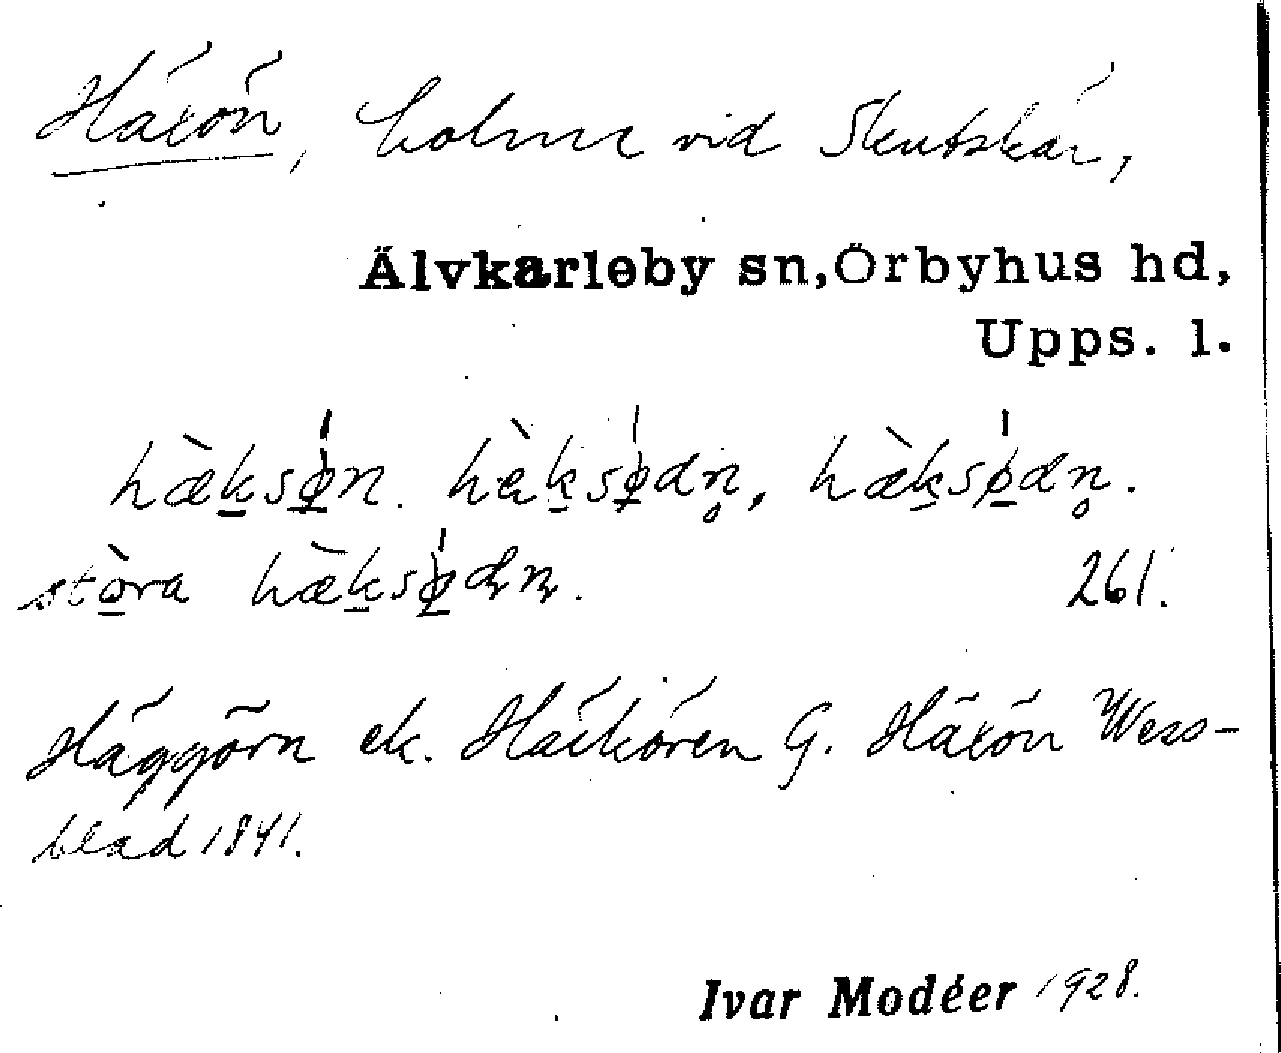 Häxön, holme vid Skutskär,
Älvkarleby sn, Örbyhus hd,
Upps. l.
hæ̀ksø̍n. hæ̀ksø̍dn̥, hæ̀ksø̍dn̥.
stòra hæ̀ksø̍dn. 261.
Häggörn ek. Häckören G. Häxön Wess-
blad 1841.
Ivar Modéer 1928.